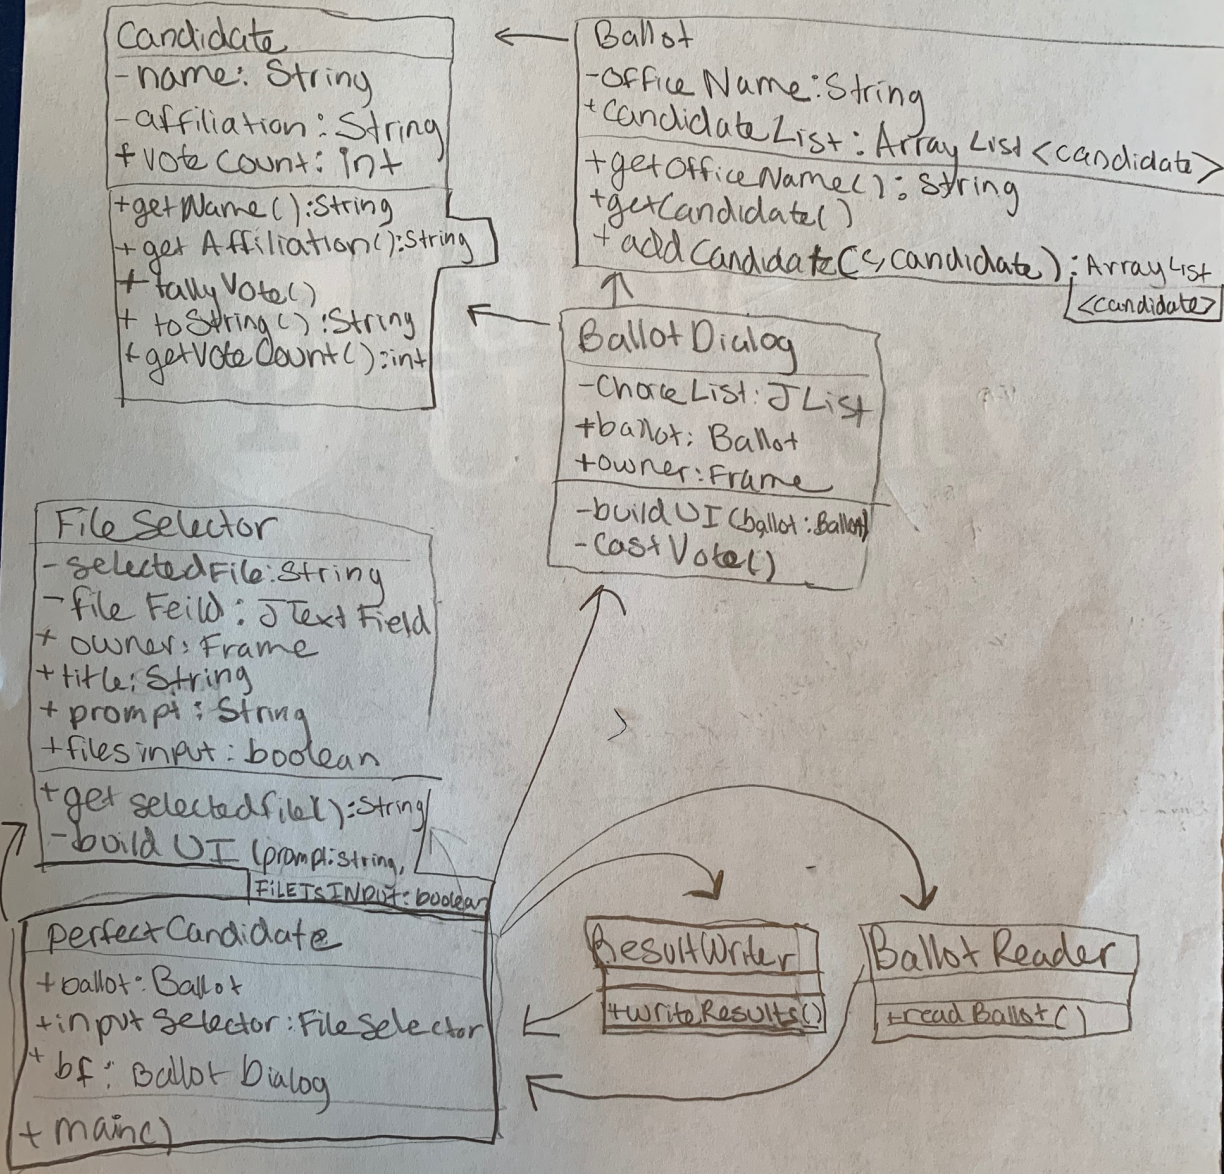 Candidate
- name: String
- affiliation: String
+ vote Count: int
+getName():String
+ get Affiliation():String
+ tallyVote()
+ toString():String
+ getVoteCount():int
Ballot
-Office Name:String
+candidateList: ArrayList<candidate>
+getOfficeName(): String
+getCandidate()
+ addCandidate(c, candidate): ArrayList
<candidate>
BallotDialog
- ChoiceList: JList
+ballot: Ballot
+owner:Frame
-buildUI(ballot:Ballot)
- CastVote()
FileSelector
- selectedFile:String
- file Feild: JTextField
+ owner: Frame
+title: String
+ prompt: String
+filesinput: boolean
+get selectedfile():String
- build UI (prompt:String,
FILEISINPUT:boolean
perfectCandidate
+ballot: Ballot
+input Selector:FileSelector
+ bf: Ballot Dialog
+ main()
ResultWriter
+writeResults()
Ballot Reader
+readBallot()